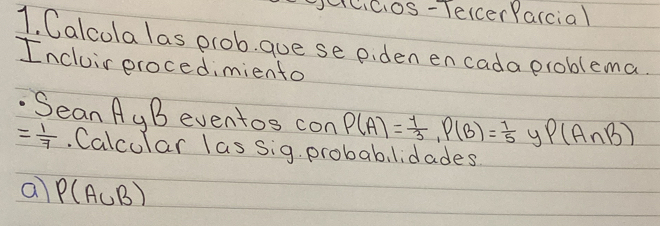 Ejercicios - Tercer Parcial
1. Calcula las prob. que se piden en cada problema.
Incluir procedimiento
• Sean A y B eventos con P(A) = 1/3, P(B) = 1/5 y P(A∩B)
= 1/7. Calcular las sig. probabilidades.
a) P(A∪B)